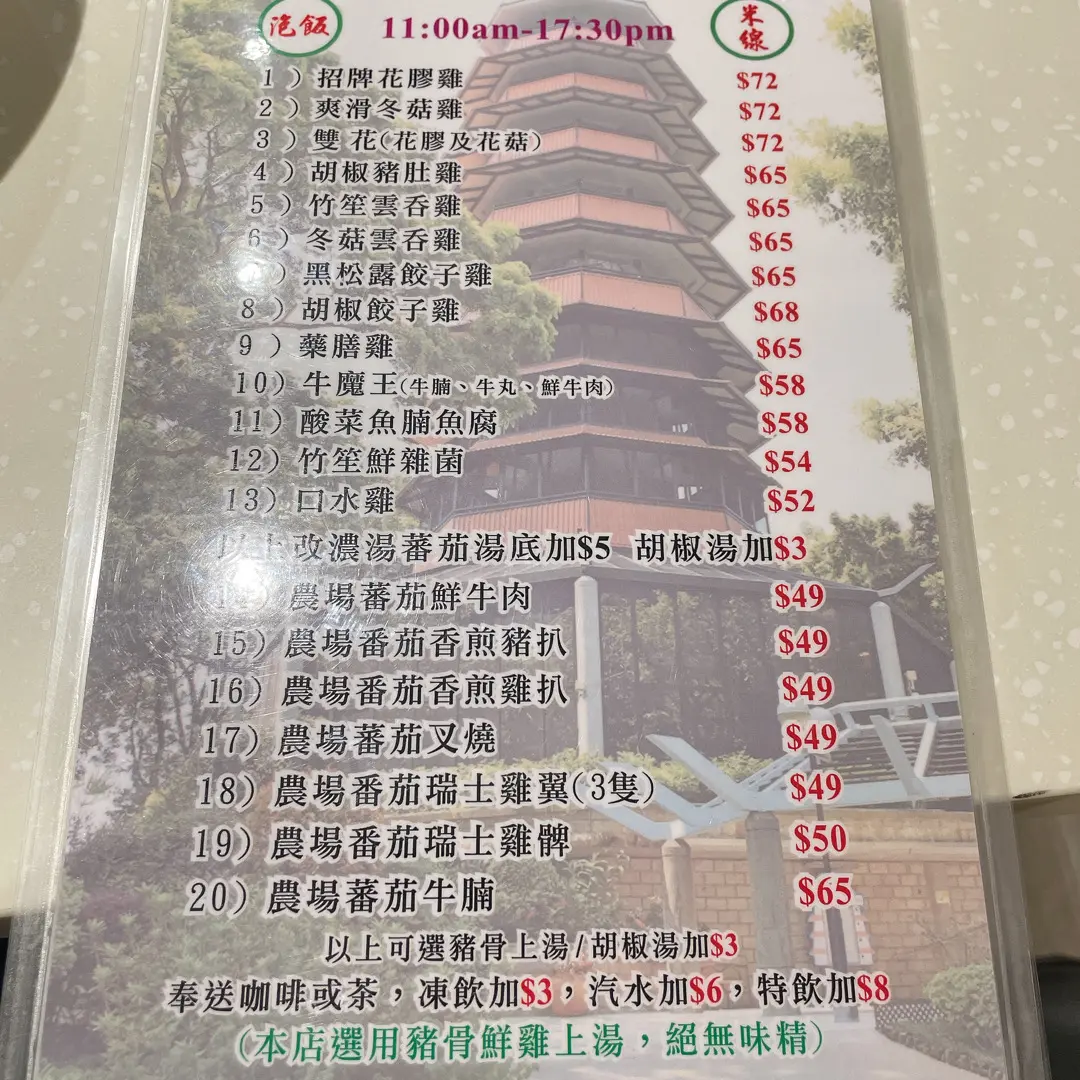 泡飯 11:00am-17:30pm 米線
1 ) 招牌花膠雞 $72
2 ) 爽滑冬菇雞 $72
3 ) 雙花(花膠及花菇) $72
4 ) 胡椒豬肚雞 $65
5 ) 竹笙雲吞雞 $65
6 ) 冬菇雲吞雞 $65
) 黑松露餃子雞 $65
8 ) 胡椒餃子雞 $68
9 ) 藥膳雞 $65
10) 牛魔王(牛腩、牛丸、鮮牛肉) $58
11) 酸菜魚腩魚腐 $58
12) 竹笙鮮雜菌 $54
13) 口水雞 $52
以上改濃湯蕃茄湯底加$5 胡椒湯加$3
農場蕃茄鮮牛肉 $49
15) 農場番茄香煎豬扒 $49
16) 農場番茄香煎雞扒 $49
17) 農場蕃茄叉燒 $49
18) 農場番茄瑞士雞翼(3隻) $49
19) 農場番茄瑞士雞髀 $50
20) 農場蕃茄牛腩 $65
以上可選豬骨上湯/胡椒湯加$3
奉送咖啡或茶，凍飲加$3，汽水加$6，特飲加$8
(本店選用豬骨鮮雞上湯，絕無味精)